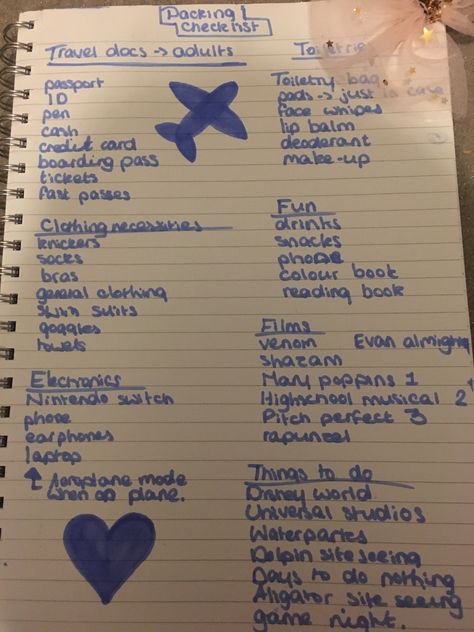 Packing
Checklist
Travel docs → adults
passport
ID
pen
cash
credit card
boarding pass
tickets
fast passes
Clothing necessities
knickers
socks
bras
general clothing
swim suits
goggles
towels
Electronics
Nintendo switch
phone
earphones
laptop
↑ Aeroplane mode
when on plane.
Toiletries
Toiletry bag
pads → just in case
face whipes
lip balm
deoderant
make-up
Fun
drinks
snacks
phone
colour book
reading book
Films
venom Evan almighty
shazam
Mary poppins 1
Highschool musical 2
Pitch perfect 3
rapunzel
Things to do
Disney world
Universal studios
Waterparks
Dolpin site seeing
Days to do nothing
Aligator site seeing
game night.